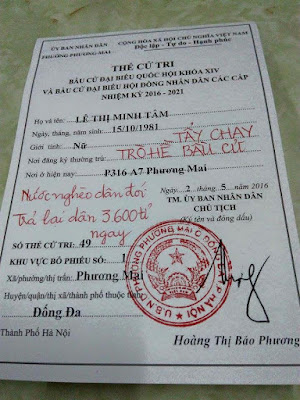 ỦY BAN NHÂN DÂN
PHƯỜNG PHƯƠNG MAI
CỘNG HÒA XÃ HỘI CHỦ NGHĨA VIỆT NAM
Độc lập - Tự do - Hạnh phúc
THẺ CỬ TRI
BẦU CỬ ĐẠI BIỂU QUỐC HỘI KHÓA XIV
VÀ BẦU CỬ ĐẠI BIỂU HỘI ĐỒNG NHÂN DÂN CÁC CẤP
NHIỆM KỲ 2016 - 2021
Họ và tên: LÊ THỊ MINH TÂM
Ngày, tháng, năm sinh: 15/10/1981
Giới tính: Nữ
TẨY CHAY
Nơi đăng ký thường trú:
TRÒ HỀ BẦU CỬ
Nơi ở hiện nay: P316 A7 Phương Mai
Nước nghèo dân đói
Trả lại dân 3.600 tỉ
ngay
Ngày 2 tháng 5 năm 2016
TM. ỦY BAN NHÂN DÂN
CHỦ TỊCH
(Ký tên và đóng dấu)
SỐ THẺ CỬ TRI: 49
KHU VỰC BỎ PHIẾU SỐ: 1
Xã/phường/thị trấn: Phương Mai
Huyện/quận/thị xã/thành phố thuộc tỉnh:
Đống Đa
Thành phố Hà Nội
Hoàng Thị Bảo Phương